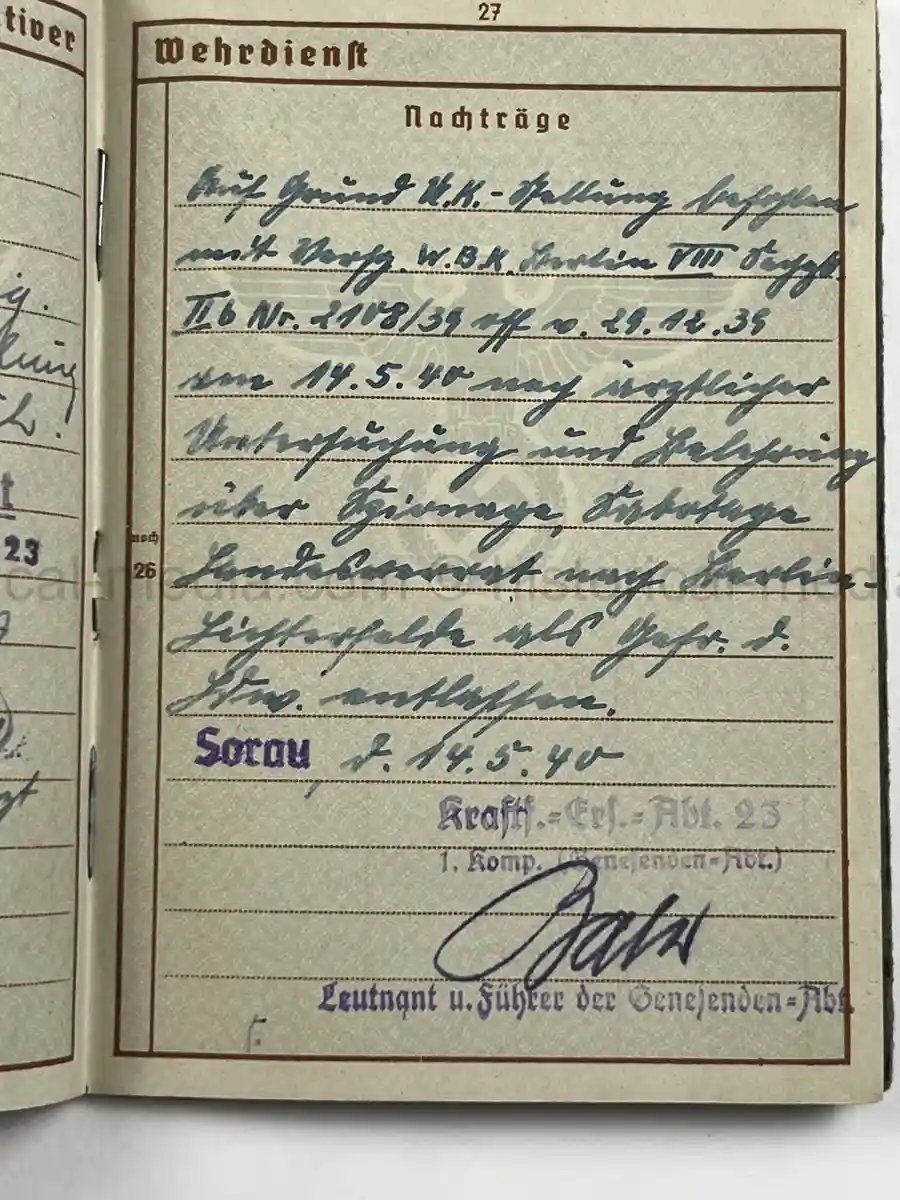 tiver
27
Wehrdienst
Nachträge
Auf Grund U.K.-Stellung befohlen
mit Verfg. W.B.K. Berlin VIII
IIb Nr. 2108/39 v. 29.12.39
am 14.5.40 nach ärztlicher
Untersuchung und Belehrung
über Spionage, Sabotage
noch
26
Landesverrat nach Berlin-
Lichterfelde als Gefr. d.
Ldw. entlassen.
Sorau, d. 14.5.40
Kraftf.=Ers.=Abt. 23
1. Komp. (Genesenden=Abt.)
Leutnant u. Führer der Genesenden=Abt.
23